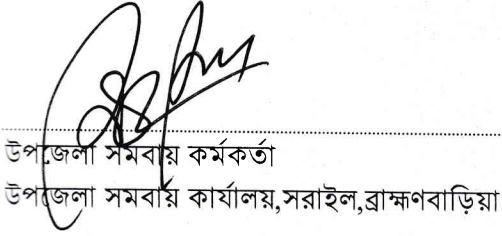 উপজেলা সমবায় কর্মকর্তা
উপজেলা সমবায় কার্যালয়,সরাইল,ব্রাহ্মণবাড়িয়া